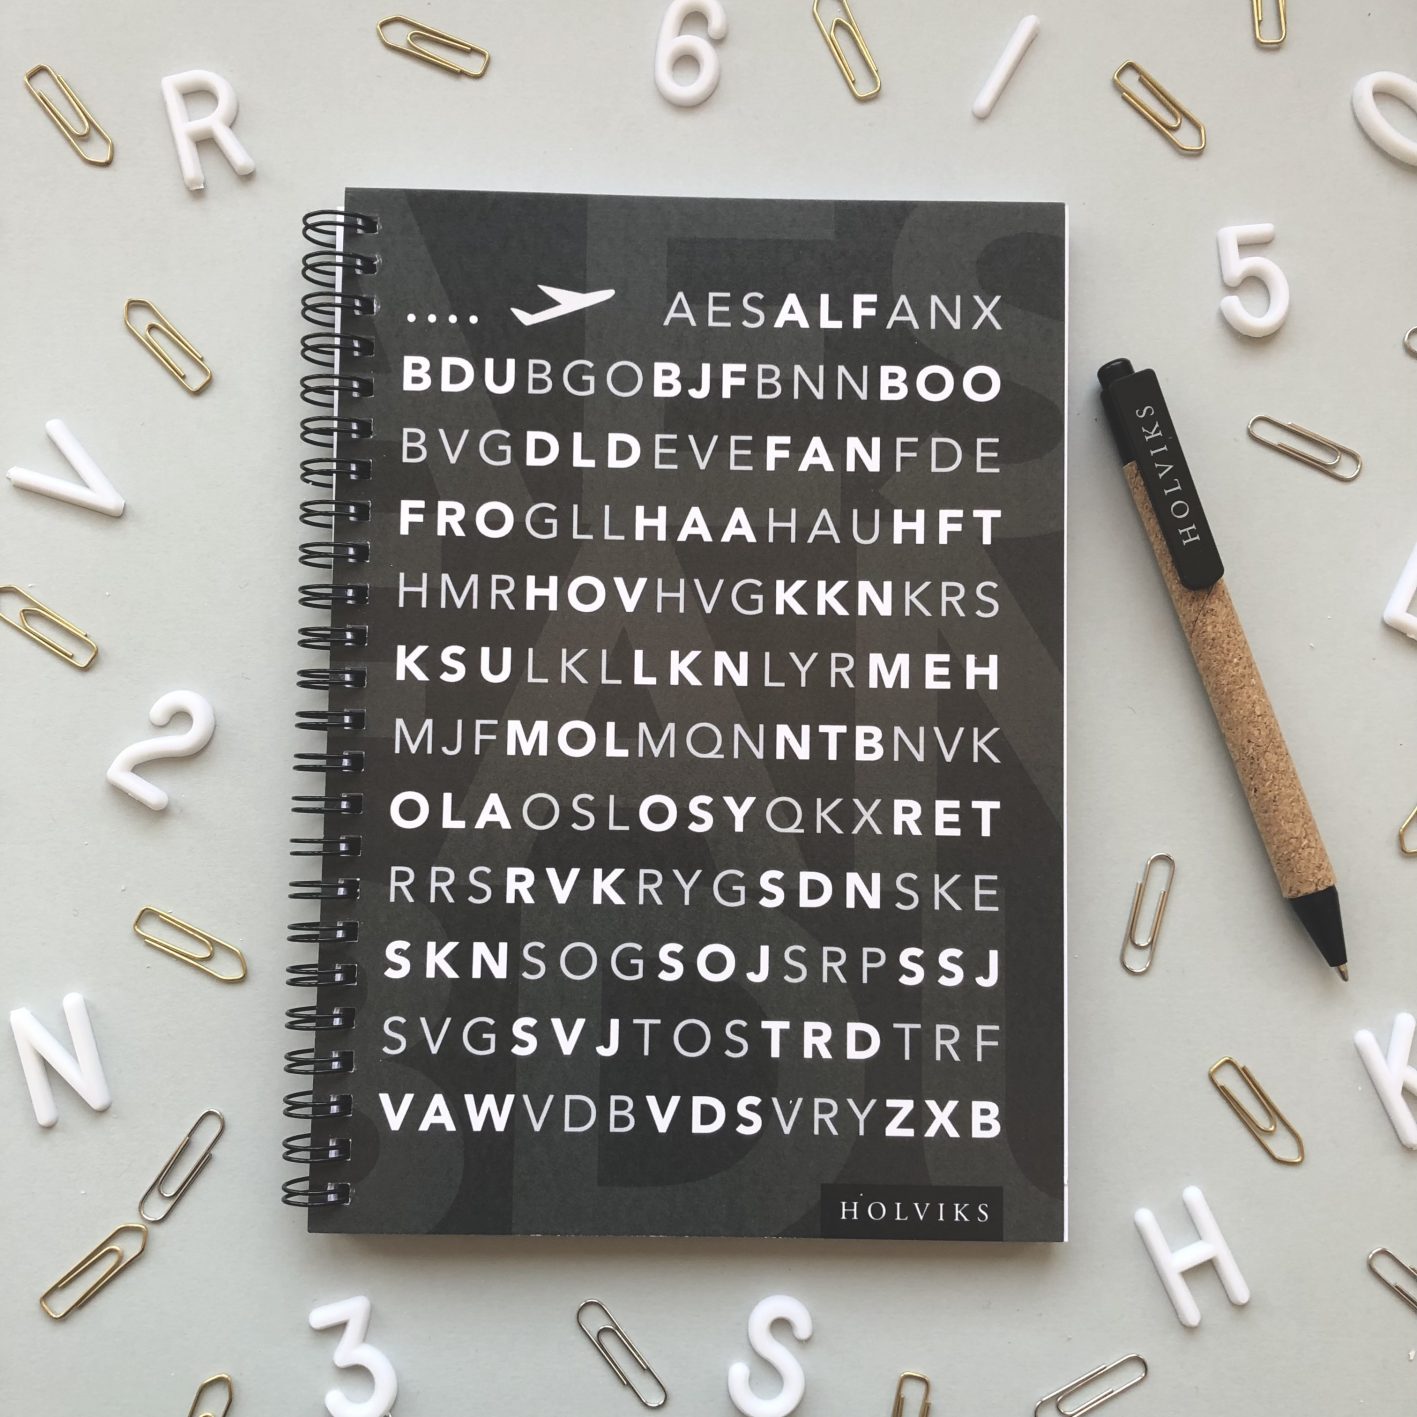 .... AESALFANX
BDUBGOBJFBNNBOO
BVGDLDEVEFANFDE
FROGLLHAAHAUHFT
HMRHOVHVGKKNKRS
KSULKLLKNLYRMEH
MJFMOLMQNNTBNVK
OLAOSLOSYQKXRET
RRSRVKRYGSDNSKE
SKNSOGSOJSRPSSJ
SVGSVJTOSTRDTRF
VAWVDBVDSVRYZXB
HOLVIKS
HOLVIKS
R
6
I
5
V
2
N
K
H
3
S